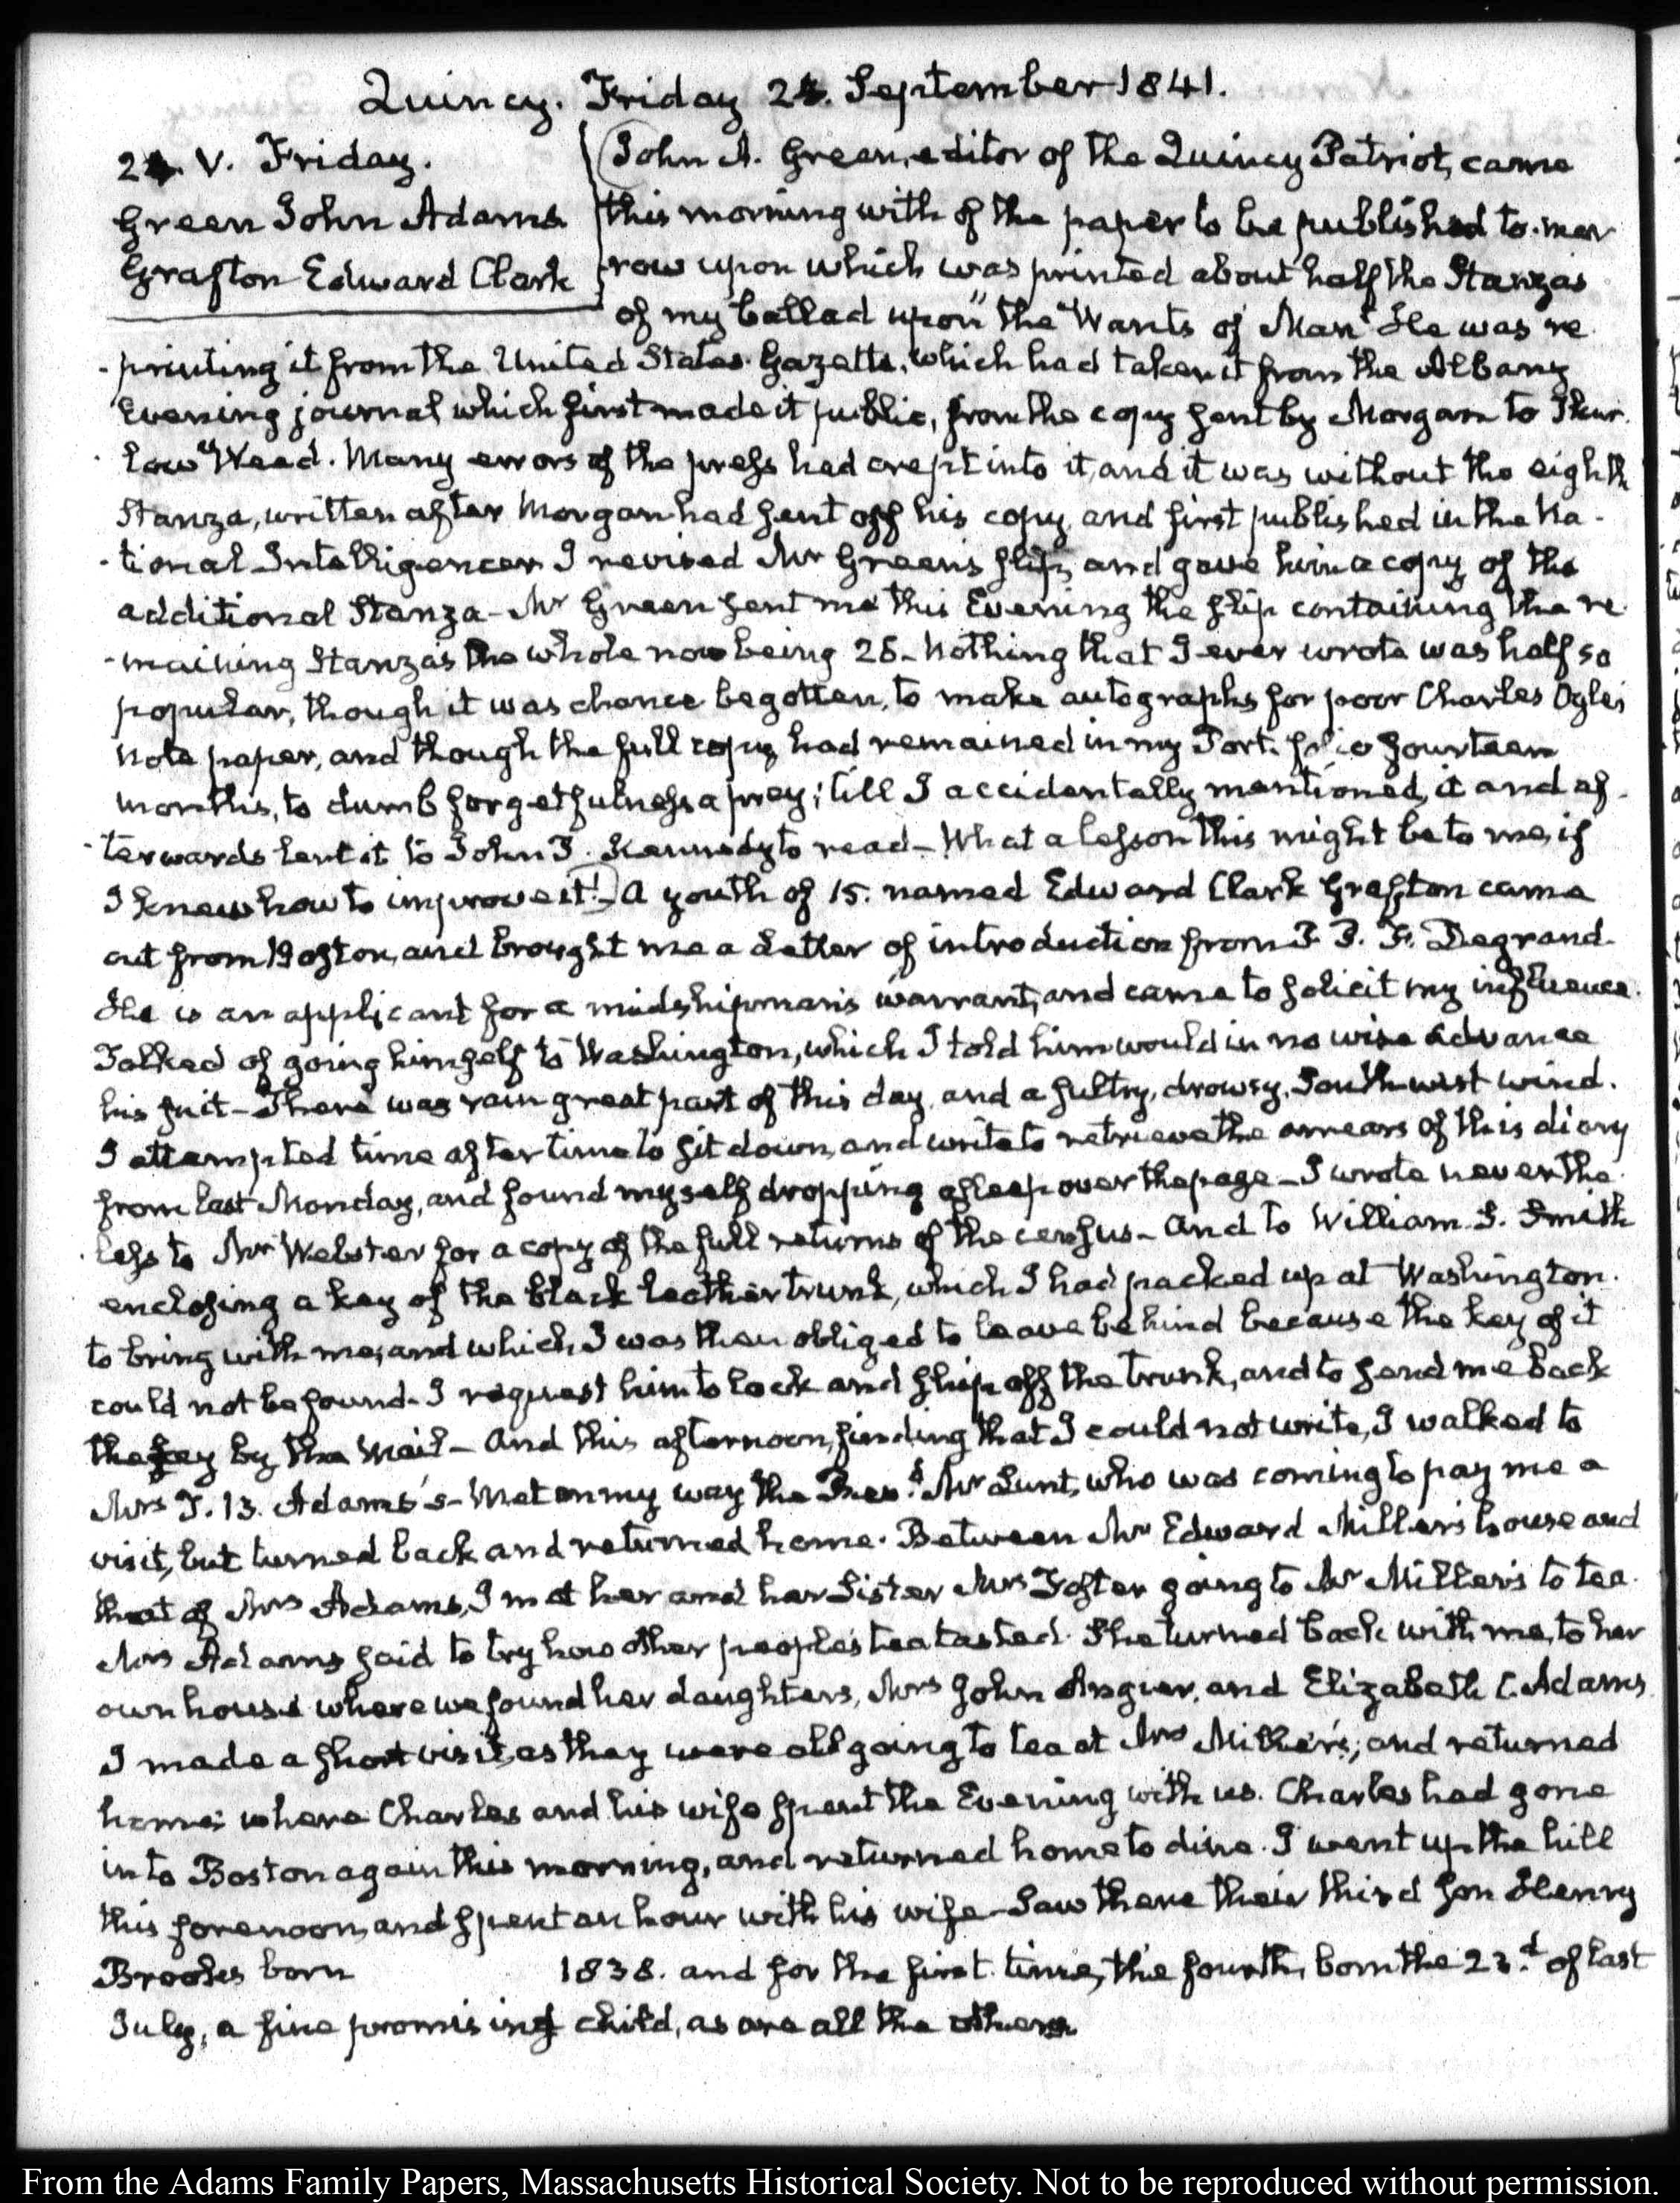 Quincy. Friday 24. September 1841.
24. V. Friday.
Green John Adams
Grafton Edward Clark
John A. Green, editor of the Quincy Patriot, came
this morning with of the paper to be published to-mor
row upon which was printed about half the Stanzas
of my ballad upon "the Wants of Man" He was re
-printing it from the United States Gazette, which had taken it from the Albany
Evening journal which first made it public, from the copy sent by Morgan to Thur-
-low Weed. Many errors of the press had crept into it, and it was without the eighth
Stanza, written after Morgan had sent off his copy, and first published in the Na-
-tional Intelligencer. I revised Mr Green's slip, and gave him a copy of the
additional Stanza - Mr Green sent me this Evening the slip containing the re
-maining Stanzas the whole now being 25 - Nothing that I ever wrote was half so
popular, though it was chance begotten, to make autographs for poor Charles Ogle's
note paper, and though the full copy had remained in my Port-folio fourteen
months, to dumb forgetfulness a prey; till I accidentally mentioned it and af-
-terwards lent it to John P. Kennedy to read - What a lesson this might be to me, if
I knew how to improve it! - A youth of 15. named Edward Clark Grafton came
out from Boston, and brought me a Letter of introduction from P. P. F. Degrand.
He is an applicant for a midshipman's warrant, and came to solicit my influence.
Talked of going himself to Washington, which I told him would in no wise advance
his suit - There was rain great part of this day, and a sultry, drowsy, Southwest wind.
I attempted time after time to sit down, and write to retrieve the arrears of this diary
from last Monday, and found myself dropping asleep over the page - I wrote neverthe
-less to Mr Webster for a copy of the full returns of the census - And to William S. Smith
enclosing a key of the black leather trunk, which I had packed up at Washington.
to bring with me, and which I was then obliged to leave behind because the key of it
could not be found. I request him to lock and ship off the trunk, and to send me back
the key by the Mail - And this afternoon, finding that I could not write, I walked to
Mrs T. B. Adams's - Met on my way the Revd. Mr Lunt, who was coming to pay me a
visit, but turned back and returned home. Between Mr Edward Miller's house and
that of Mrs Adams, I met her and her Sister Mrs Foster going to Mr Miller's to tea.
Mrs Adams said to try how other people's tea tasted. She turned back with me, to her
own house where we found her daughters, Mrs John Angier, and Elizabeth C. Adams
I made a short visit, as they were all going to tea at Mrs Miller's; and returned
home; where Charles and his wife spent the Evening with us. Charles had gone
into Boston again this morning, and returned home to dine. I went up the hill
this forenoon, and spent an hour with his wife - Saw there their third son Henry
Brooks born 1838. and for the first time, the fourth, born the 23.d of last
July, a fine promising child, as are all the others
From the Adams Family Papers, Massachusetts Historical Society. Not to be reproduced without permission.